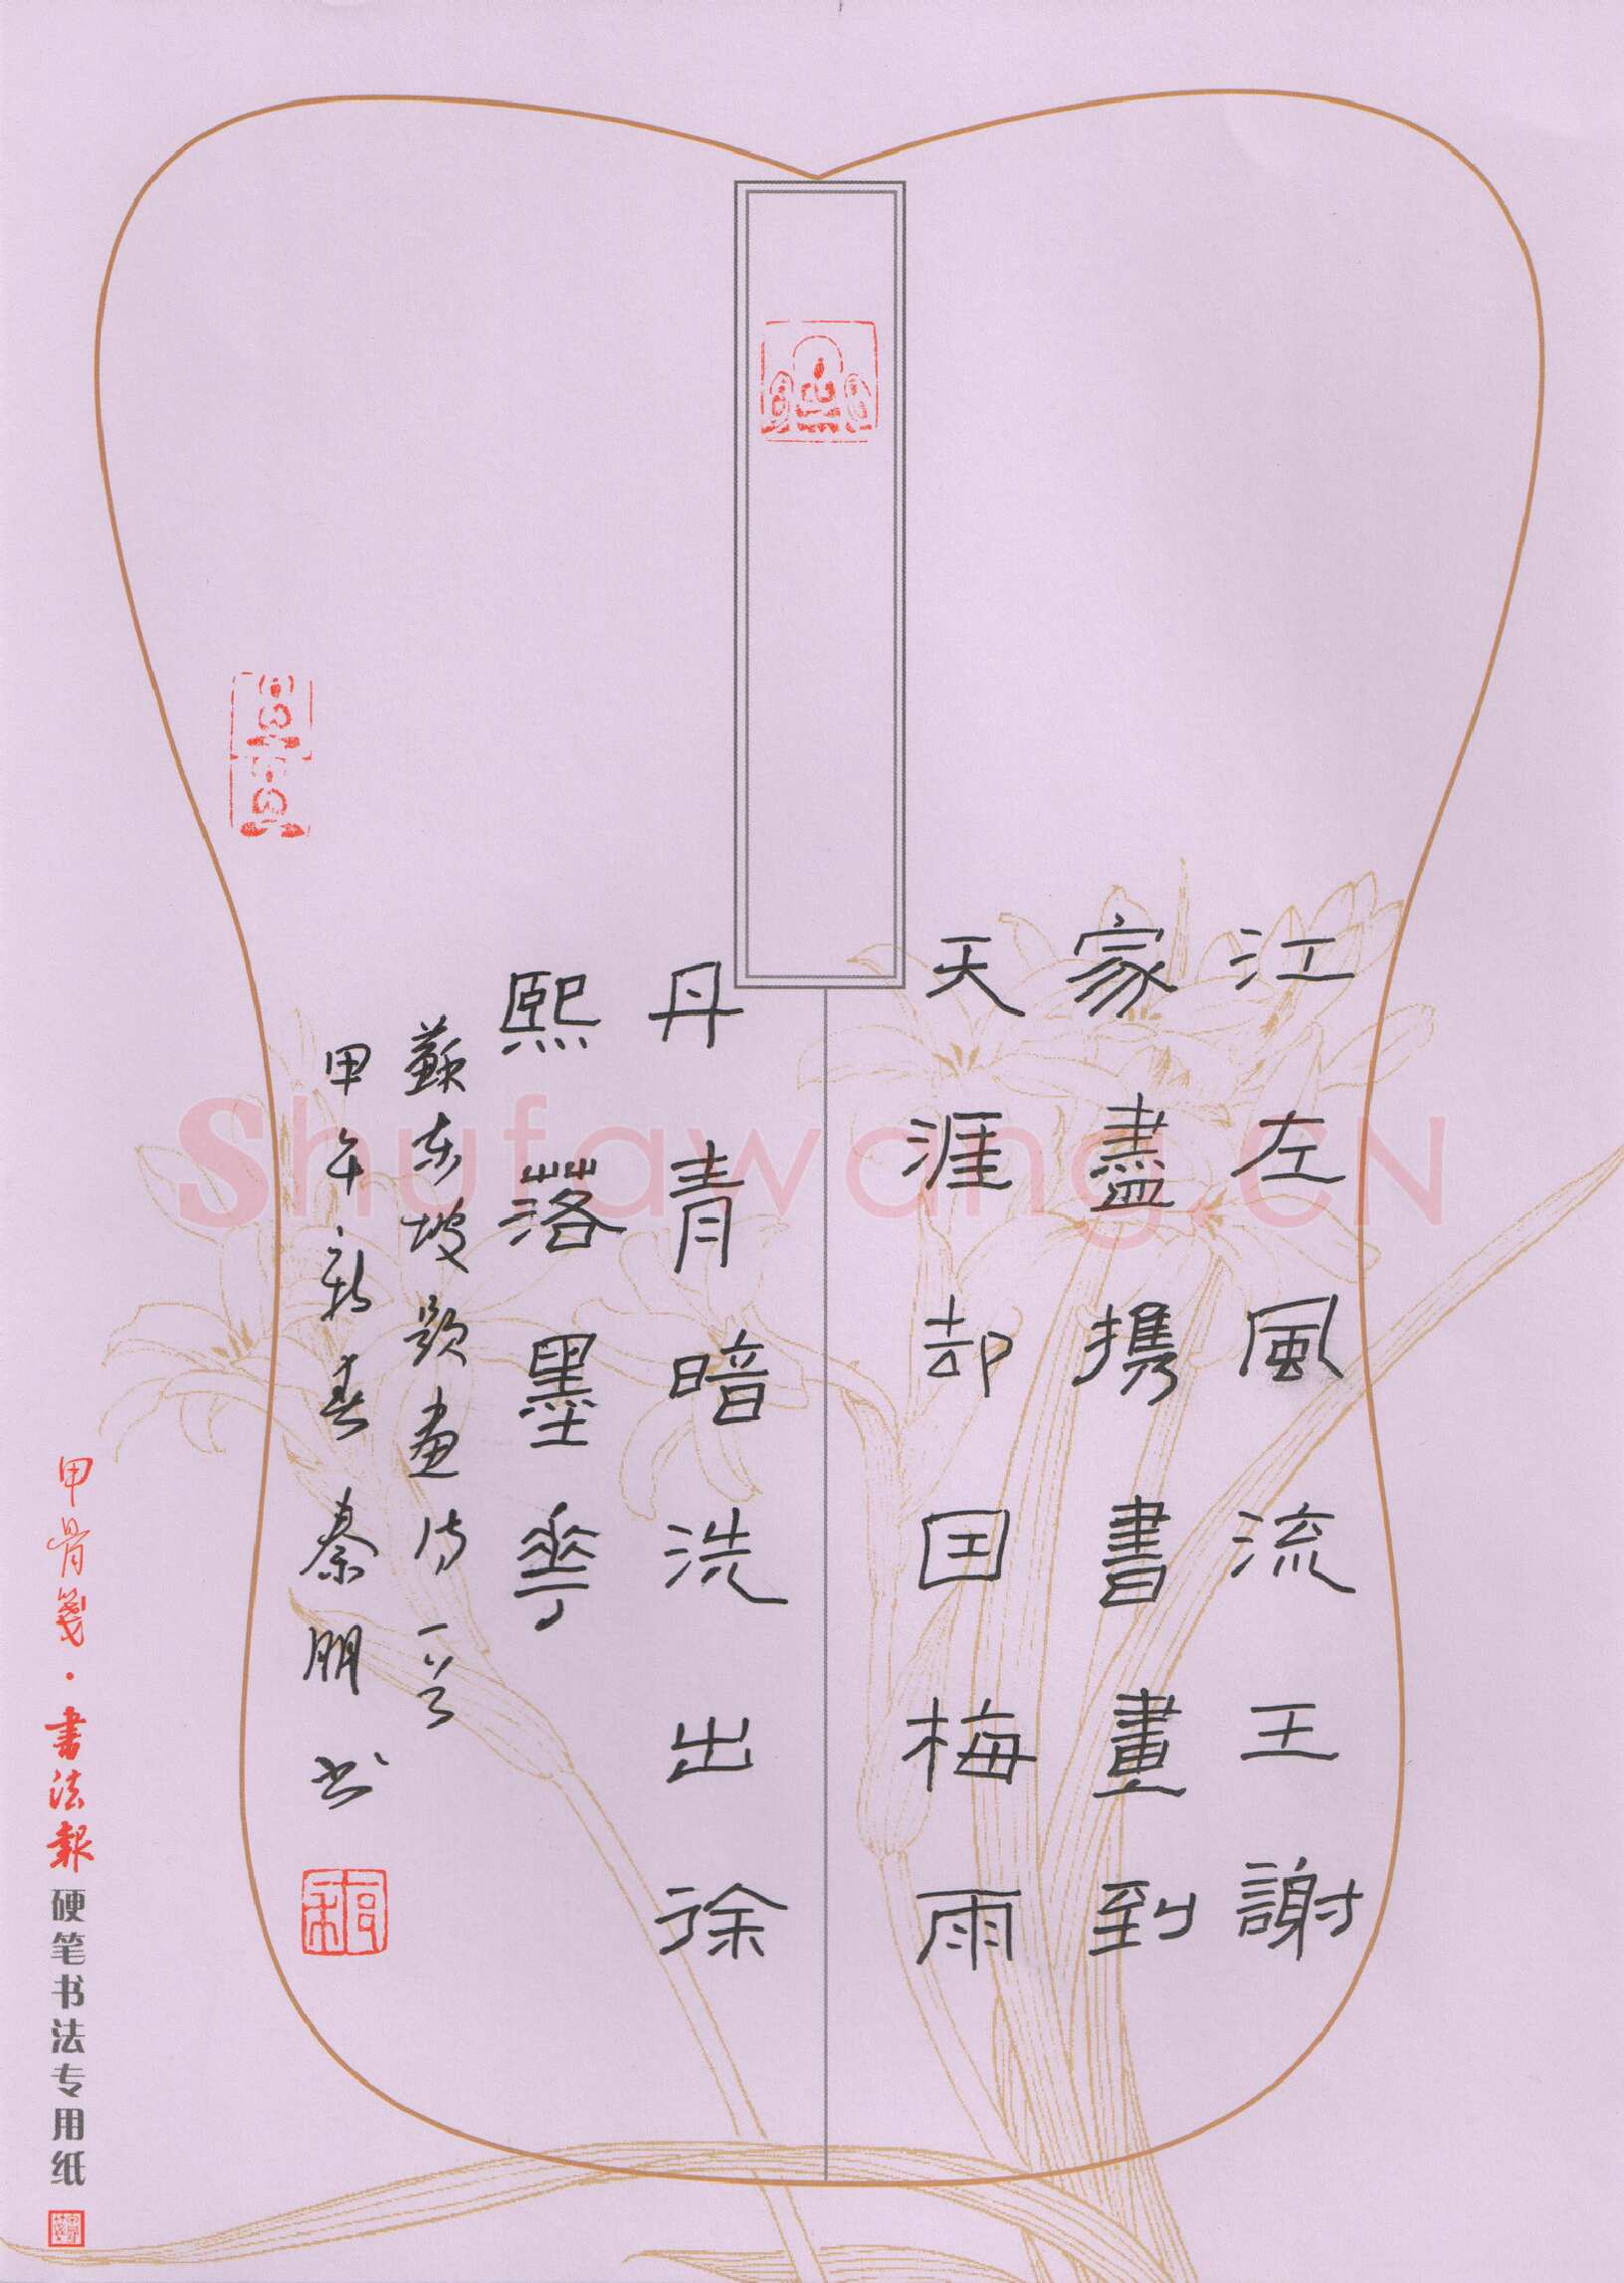 江左風流王謝
家盡携書畫到
天涯却因梅雨
丹青暗洗出徐
熙落墨華
蘇东坡題畫詩一首
甲午新春秦朋书
甲骨箋·書法報硬笔书法专用纸
Shufawang.CN